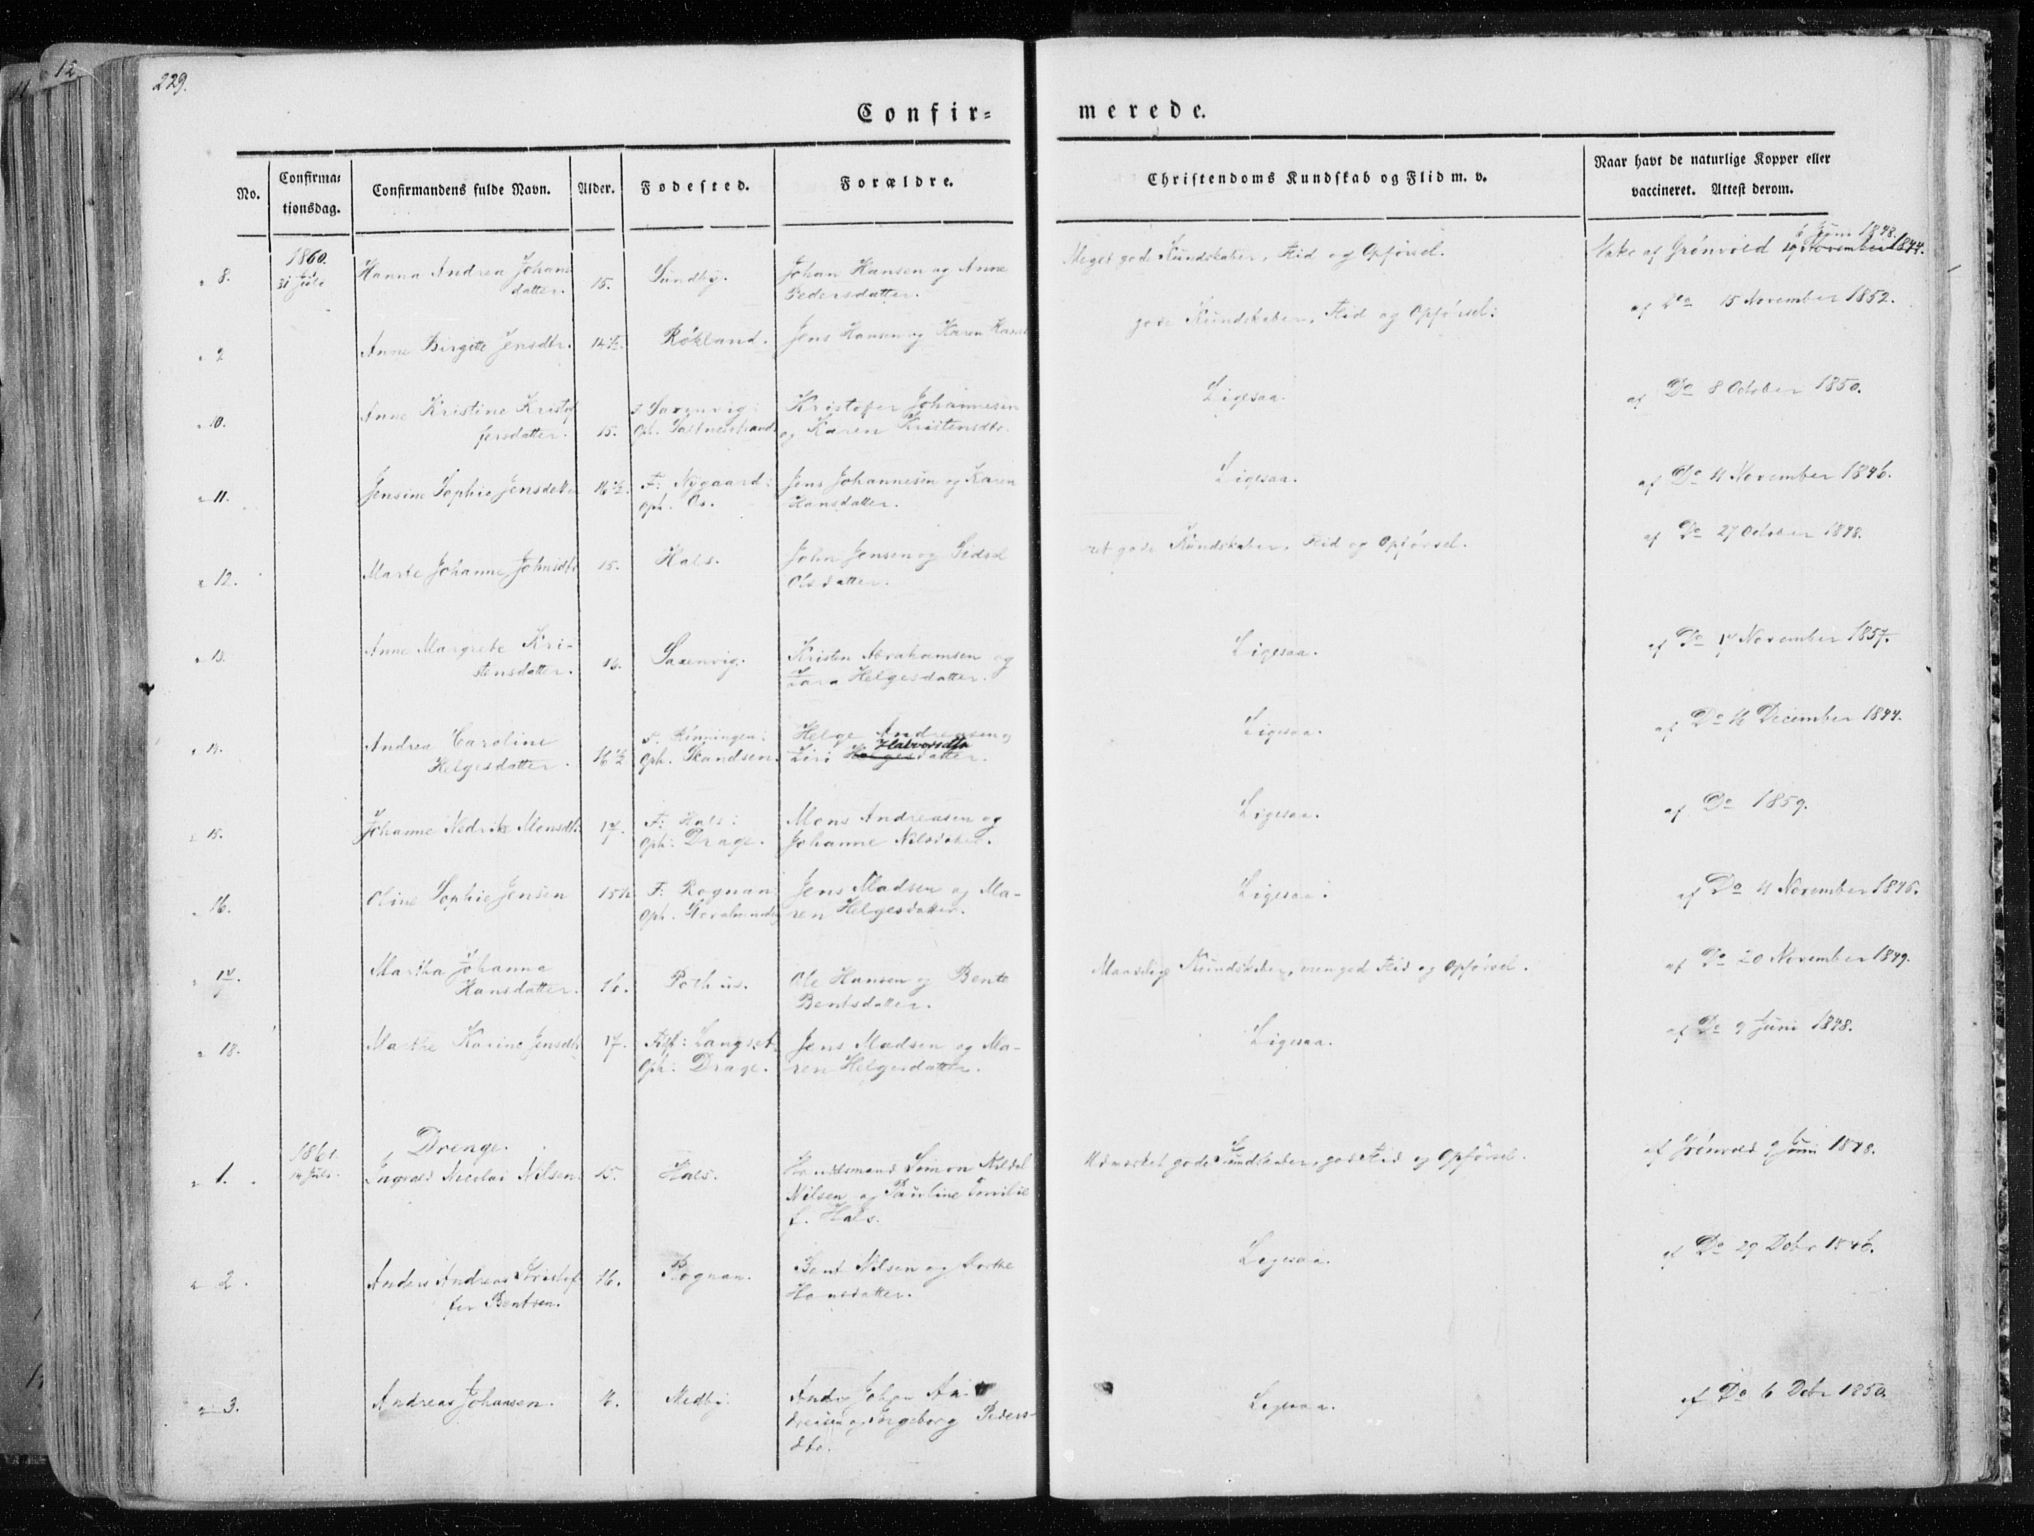 12
229.
Confir=
merede.
No.
Confirma=
tionsdag.
Confirmandens fulde Navn.
Alder.
Fødested.
Forældre.
Christendoms Kundskab og Flid m. v.
Naar havt de naturlige Kopper eller
vaccineret. Attest derom.
1860.
31 Juli
8. Hanna Andrea Johans
datter. 15. Sundby. Johan Hansen og Anne
Pedersdatter.
Meget gode Kundskaber, Flid og Opførsel.
Vakc. af Grønvold 6 Juni 1848.
November 1844.
Anne Birgitte Jensdtr. 14½. Røkland. Jens Hansen og Karen
gode Kundskaber, Flid og Opførsel:
af Do 15 November 1852.
10. Anne Kristine Kristof
fersdatter. 15. F. Saxenvig: Kristofer Johannesen
Oph. og Karen Kristensdtr.
Ligesaa.
af Do 8 October 1850.
11. Jensine Sophie Jensdatter 16½. F: Nygaard: Jens Johannesen og Karen
Oph. Os. Hansdatter.
Ligesaa.
af Do 4 November 1846.
12. Marte Johanne Johnsdtr 15. Hals. John Jensen og Sidsel
Olsdatter.
ret gode Kundskaber, Flid og Opførsel.
af Do 27 October 1848.
13. Anne Margrete Kri-
stensdatter. 16. Saxenvig. Kristen Abrahamsen og
Helgesdatter.
Ligesaa.
af Do 17 November 1857.
Andrea Caroline
Helgesdatter. 16½ F. Rinningen: Helge Andreasen og
Oph. Skandsen. Siri Halvorsdtr
Ligesaa.
af Do 16 December 1844.
15. Johanne Monsdtr 17. F: Hals: Mons Andreasen og
Oph: Drage. Johanne Nilsdatter.
Ligesaa.
af Do 1859.
16. Oline Sophie Jensen 15½ F: Rognan: Jens Madsen og Ma-
Oph. ren Helgesdatter.
Ligesaa:
af Do 4 November 1846.
17. Martha Johanna
Hansdatter. 16. Pothus. Ole Hansen og Bente
Bentsdatter.
Maadelige Kundskaber, Flid og Opførsel.
af Do 20 November 1849.
18. Marthe Karine Jensdtr 17. Langset. Jens Madsen og Ma-
Oph: Drage. ren Helgesdatter.
Ligesaa.
af Do 9 Juni 1848.
Drenge.
1861.
14 Juli.
1. Ingvald Nicolai Nilsen. 15. Hals. Simon
Nilsen og Pauline Emilie
f. Hals.
Udmærket gode Kundskaber, god Flid og Opførsel.
af Grønvold 9 Juni 1848.
2. Anders Andreas Kristof
fer Bentsen. 16. Rognan. Bent Nilsen og
Hansdatter.
Ligesaa.
af Do 29 Debr 1846.
3. Andreas Johansen. 16. Nedby. Johan
og Ingeborg Peders-
dtr.
Ligesaa.
af Do 6 Debr 1850.